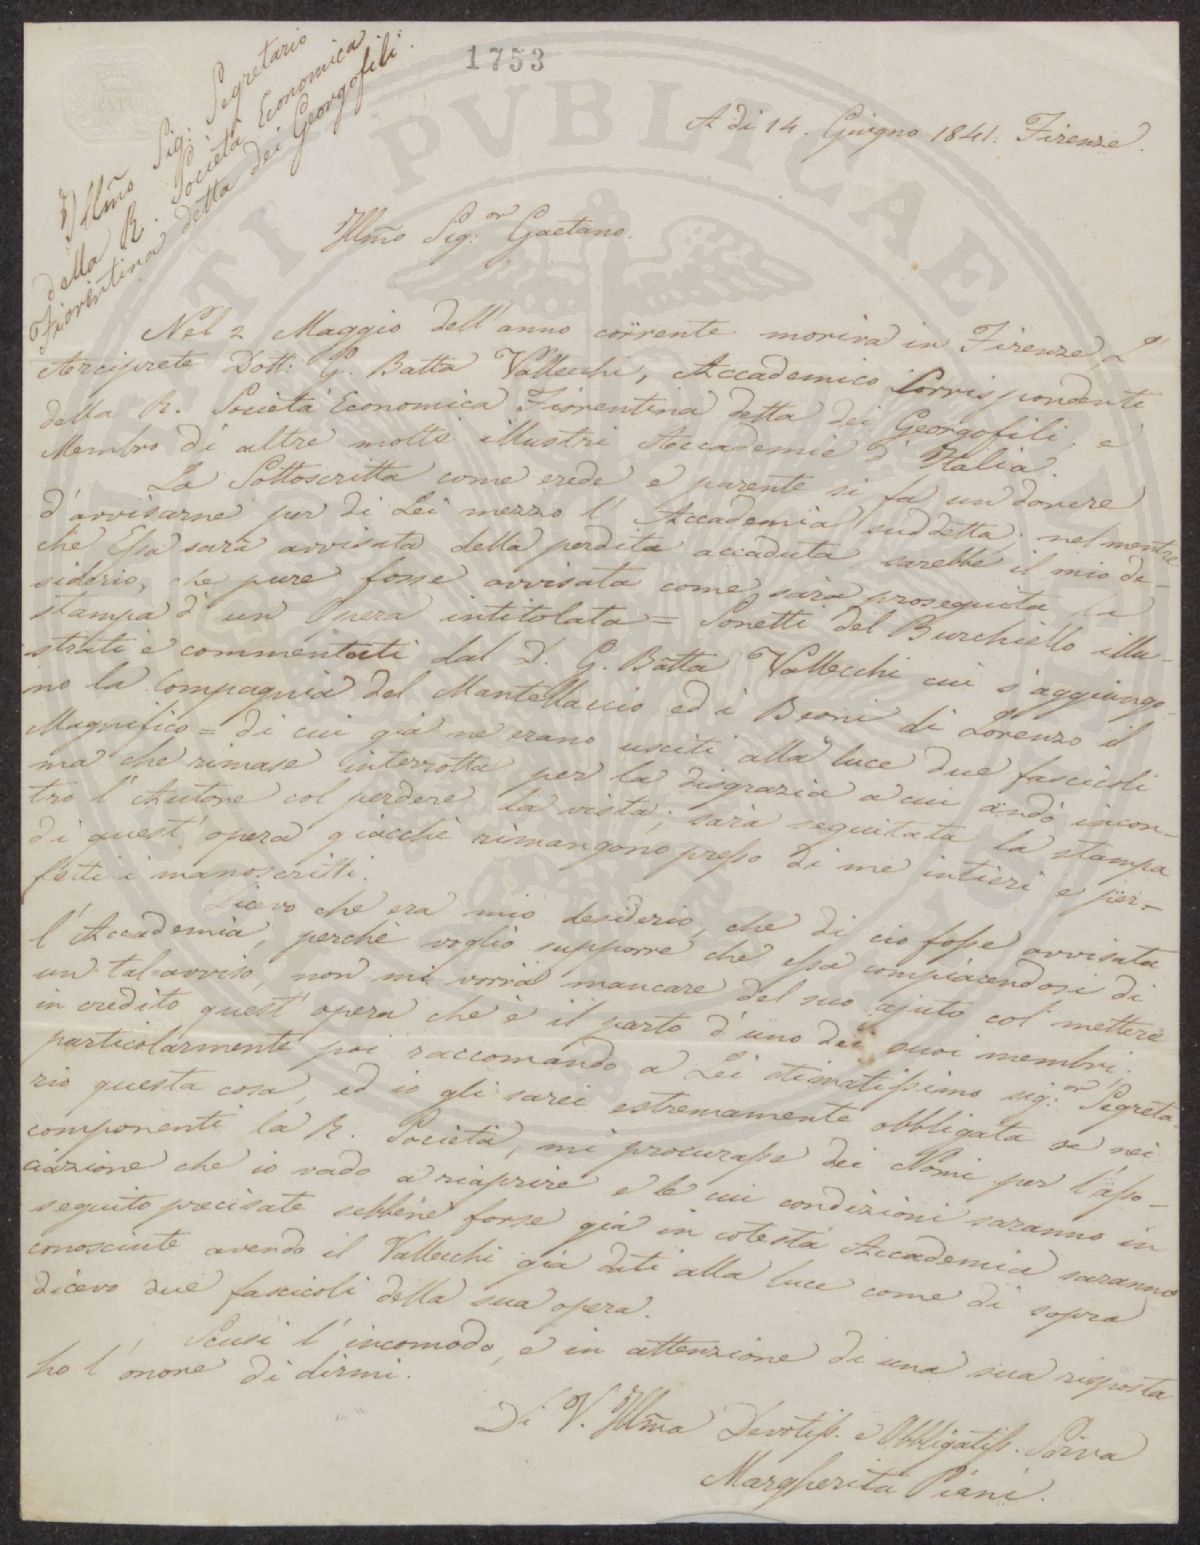 1753
Illm̃o Sig: Segretario
della R. Società Economica
Fiorentina detta dei Georgofili.
A dì 14. Giugno 1841. Firenze.
Illm̃o Sig:or Gaetano.
Nel 2 Maggio dell'anno corrente moriva in Firenze L'
Arciprete Dott: G. Batta Vallecchi, Accademico Corrispondente
della R. Società Economica Fiorentina detta dei Georgofili, e
Membro di altre molte illustri Accademie d'Italia.
La Sottoscritta come erede e parente si fa un dovere
d'avvisarne per di Lei mezzo l'Accademia suddetta; nel mentre
che Essa sarà avvisata della perdita accaduta, sarebbe il mio de-
siderio, che pure fosse avvisata come sarà proseguita la
stampa d'un Opera intitolata = Sonetti del Burchiello illu-
strati e commentati dal D. G. Batta Vallecchi cui s'aggiungo-
no la Compagnia del Mantellaccio ed i Beoni di Lorenzo il
Magnifico = di cui già ne erano usciti alla luce due fascicoli
ma che rimase interrotta per la disgrazia a cui andò incon-
tro l'Autore col perdere la vista; sarà seguitata la stampa
di quest'opera giacchè rimangono presso di me intieri e per-
fetti i manoscritti.
Dicevo che era mio desiderio, che di ciò fosse avvisata
l'Accademia, perchè voglio supporre che essa compiacendosi di
un tal avviso, non mi vorrà mancare del suo ajuto col mettere
in credito quest'opera che è il parto d'uno dei suoi membri;
particolarmente poi raccomando a Lei stimatissimo sig:or Segreta-
rio questa cosa, ed io gli sarei estremamente obbligata se nei
componenti la R. Società, mi procurasse dei Nomi per l'asso-
ciazione che io vado a riaprire e le cui condizioni saranno in
seguito precisate sebbene forse già in cotesta Accademia saranno
conosciute avendo il Vallecchi già dati alla luce come di sopra
dicevo due fascicoli della sua opera.
Scusi l'incomodo, e in attenzione di una sua risposta
ho l'onore di dirmi.
Di V. Illm̃a Devotiss. e Obbligatiss. Serva
Margherita Piani.